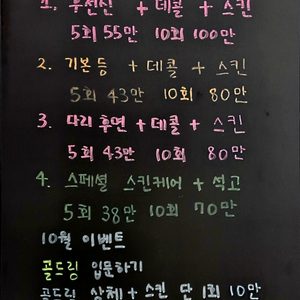 1. 후전신 + 데콜 + 스킨
5회 55만 10회 100만
2. 기본등 + 데콜 + 스킨
5회 43만 10회 80만
3. 다리후면 + 데콜 + 스킨
5회 43만 10회 80만
4. 스페셜 스킨케어 + 석고
5회 38만 10회 70만
10월 이벤트
골드링 입문하기
골드링 상체 + 스킨 단 1회 10만